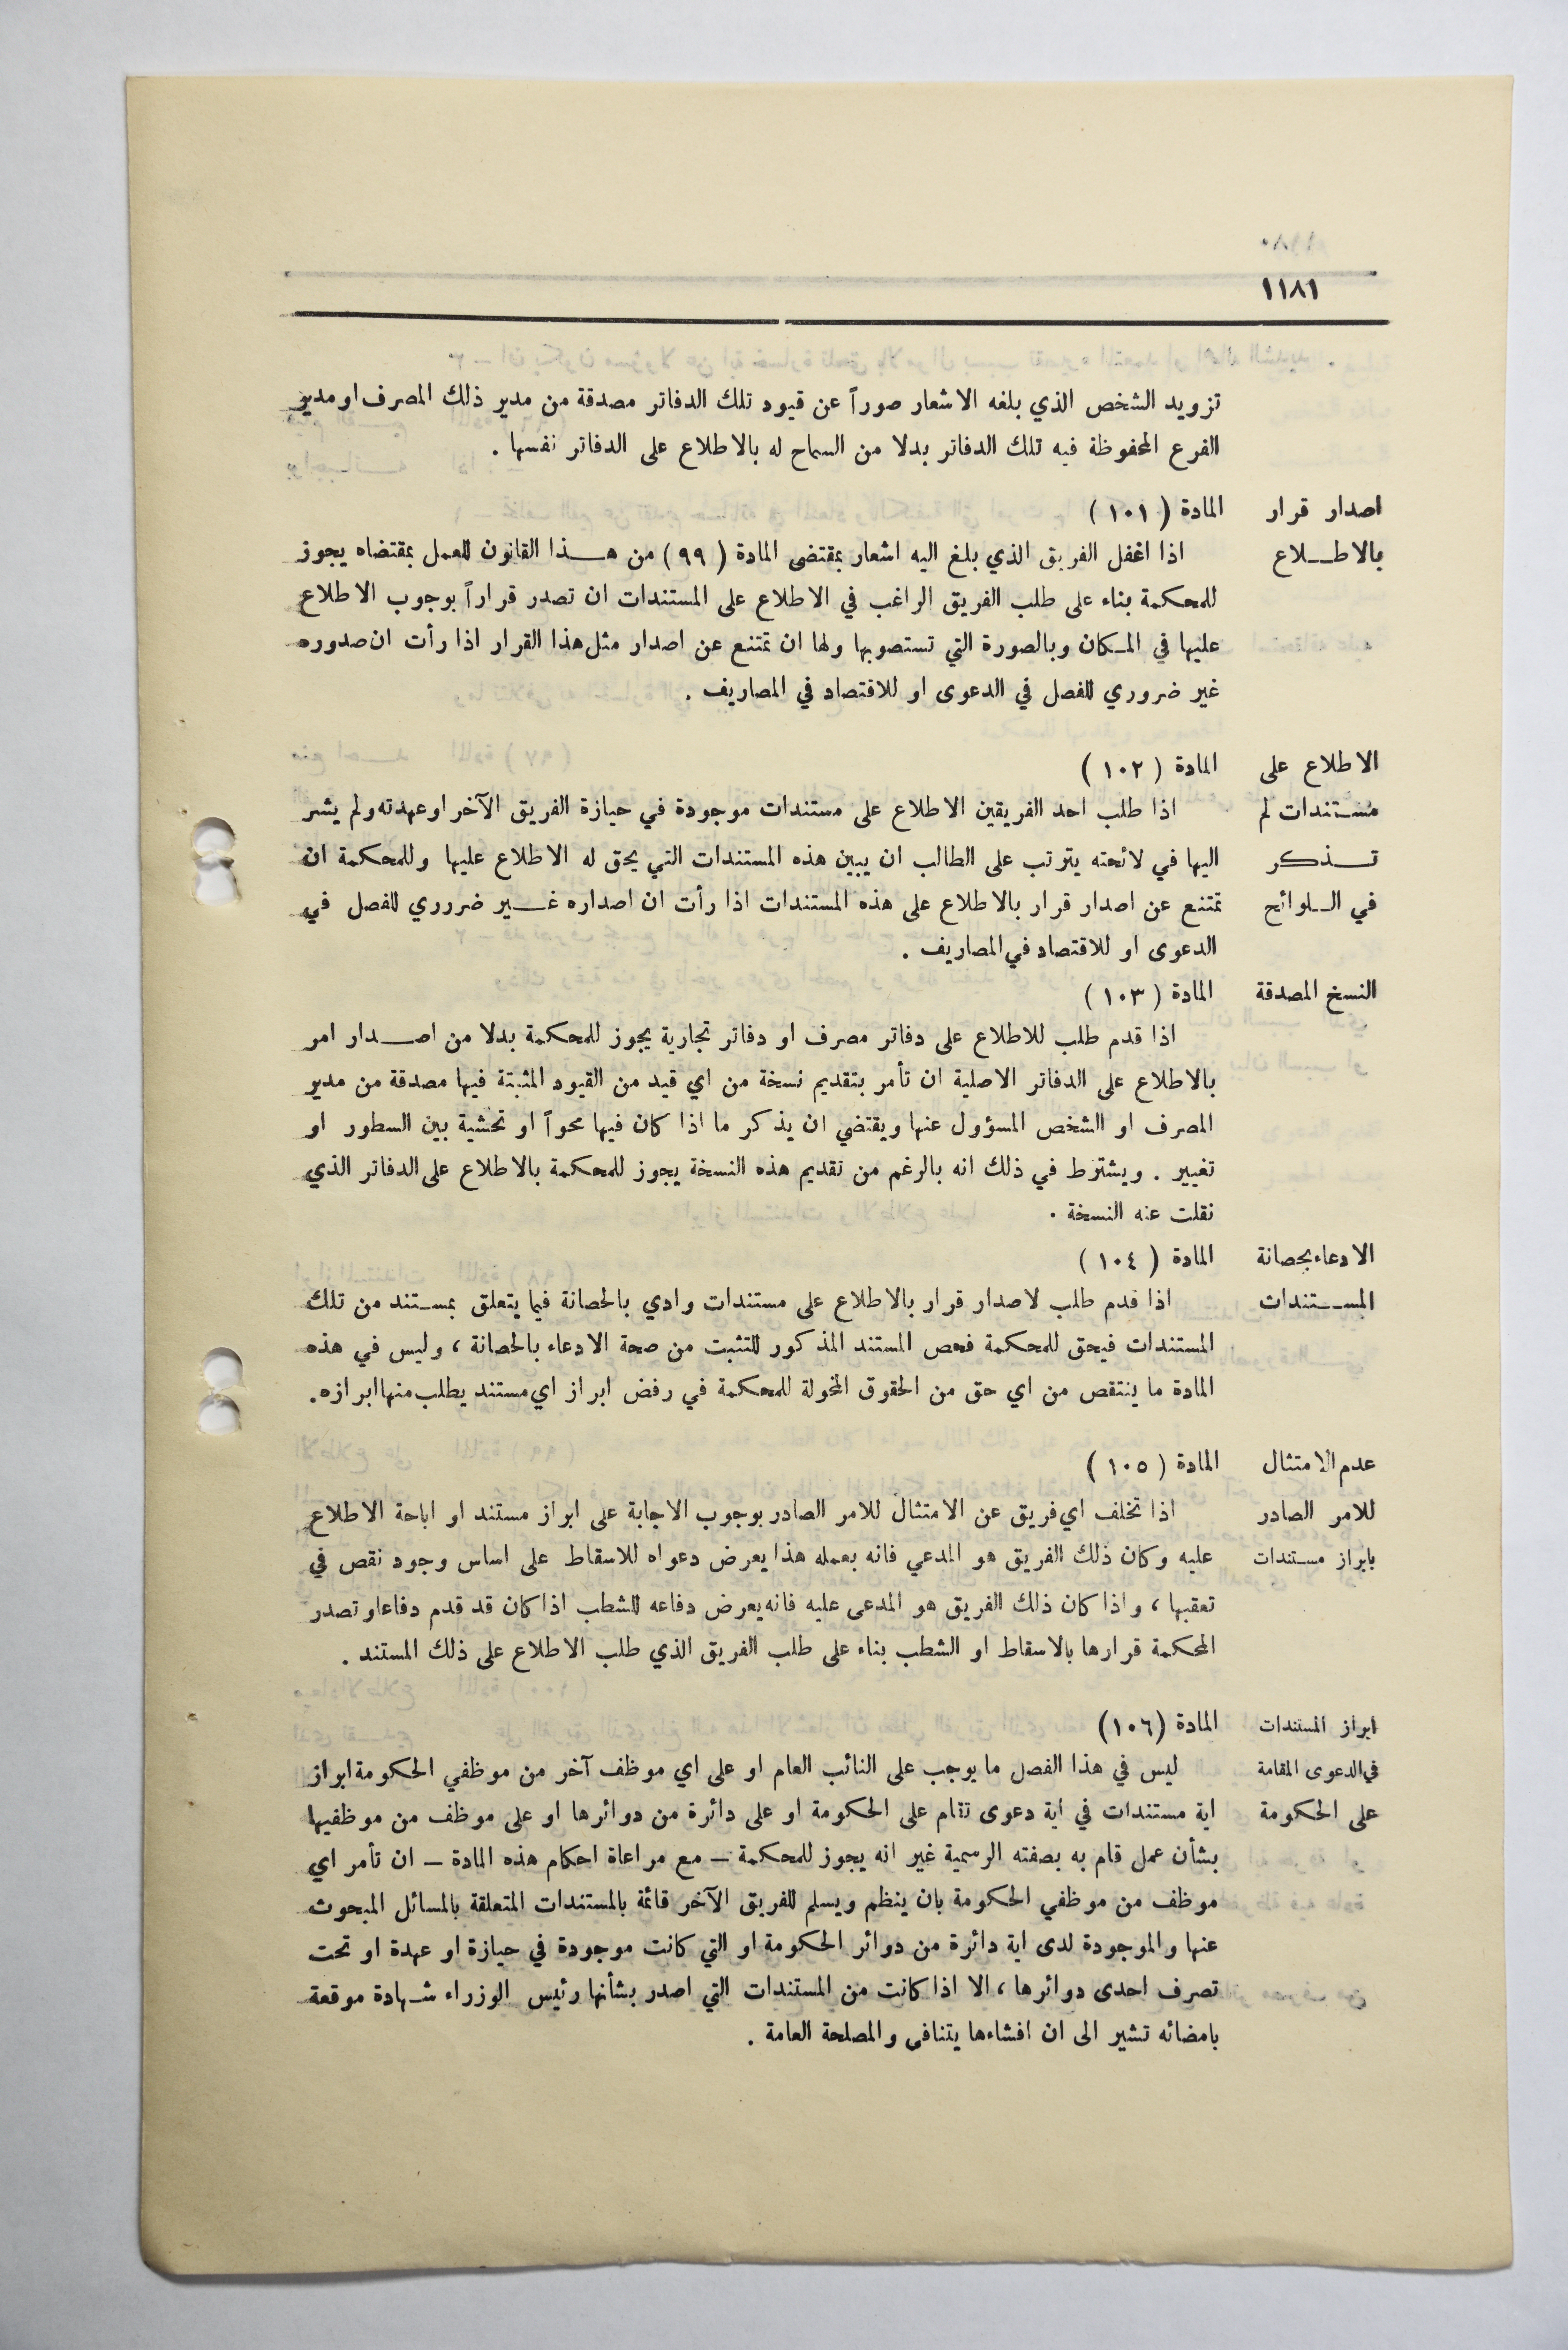 ١١٨١
تزويد الشخص الذي بلغه الاشعار صوراً عن قيود تلك الدفاتر مصدقة من مدير ذلك المصرف او مدير
الفرع المحفوظة فيه تلك الدفاتر بدلا من السماح له بالاطلاع على الدفاتر نفسها .
اصدار قرار المادة ( ١٠١ )
بالاطــلاع اذا اغفل الفريق الذي بلغ اليه اشعار بمقتضى المادة ( ٩٩ ) من هــذا القانون للعمل بمقتضاه يجوز
للمحكمة بناء على طلب الفريق الراغب في الاطلاع على المستندات ان تصدر قراراً بوجوب الاطلاع
عليها في المـكان وبالصورة التي تستصوبها ولها ان تمتنع عن اصدار مثل هذا القرار اذا رأت ان صدوره
غير ضروري للفصل في الدعوى او للاقتصاد في المصاريف .
الاطلاع على المادة ( ١٠٢ )
مستندات لم اذا طلب احد الفريقين الاطلاع على مستندات موجودة في حيازة الفريق الآخر او عهدته ولم يشر
تــذكر اليها في لائحته يترتب على الطالب ان يبين هذه المستندات التي يحق له الاطلاع عليها وللمحكمة ان
في الـلوائح تمتنع عن اصدار قرار بالاطلاع على هذه المستندات اذا رأت ان اصداره غــير ضررري للفصل في
الدعوى او للاقتصاد في المصاريف .
النسخ المصدقة المادة ( ١٠٣ )
اذا قدم طلب للاطلاع على دفاتر مصرف او دفاتر تجارية يجوز للمحكمة بدلا من اصــدار امر
بالاطلاع على الدفاتر الاصلية ان تأمر بتقديم نسخة من اي قيد من القيود المثبتة فيها مصدقة من مدير
المصرف او الشخص المسؤول عنها ويقتضي ان يذكر ما اذا كان فيها محواً او تحشية بين السطور او
تغيير . ويشترط في ذلك انه بالرغم من تقديم هذه النسخة يجوز للمحكمة بالاطلاع على الدفاتر الذي
نقلت عنه النسخة .
الادعاء بحصانة المادة ( ١٠٤ )
المســتندات اذا قدم طلب لاصدار قرار بالاطلاع على مستندات وادي بالحصانة فيما يتعلق بمستند من تلك
المستندات فيحق للمحكمة فحص المستند المذكور للتثبت من صحة الادعاء بالحصانة ، وليس في هذه
المادة ما ينتقص من اي حق من الحقوق المخولة للمحكمة في رفض ابراز اي مستند يطلب منها ابرازه.
عدم الامتثال المادة ( ١٠٥ )
للامر الصادر اذا تخلف اي فريق عن الامتثال للامر الصادر بوجوب الاجابة على ابراز مستند او اباحة الاطلاع
بابراز مستندات عليه وكان ذلك الفريق هو المدعي فانه بعمله هذا يعرض دعواه للاسقاط على اساس وجود نقص في
تعقبها ، واذا كان ذلك الفريق هو المدعى عليه فانه يعرض دفاعه للشطب اذا كان قد قدم دفاعا وتصدر
المحكمة قرارها بالاسقاط او الشطب بناء على طلب الفريق الذي طلب الاطلاع على ذلك المستند .
ابراز المستندات المادة (١٠٦)
في الدعوى المقامة ليس في هذا الفصل ما يوجب على النائب العام او على اي موظف آخر من موظفي الحكومة ابراز
على الحكومة اية مستندات في اية دعوى تقام على الحكومة او على دائرة من دوائرها او على موظف من موظفيها
بشأن عمل قام به بصفته الرسمية غير انه يجوز للمحكمة – مع مراعاة احكام هذه المادة – ان تأمر اي
موظف من موظفي الحكومة بان ينظم ويسلم للفريق الآخر قائمة بالمستندات المتعلقة بالمسائل المبحوث
عنها والموجودة لدى اية دائرة من دوائر الحكومة او التي كانت موجودة في حيازة او عهدة او تحت
تصرف احدى دوائرها ، الا اذا كانت من المستندات التي اصدر بشأنها رئيس الوزراء شـهادة موقعة
بامضائه تشير الى ان افشاءها يتنافى والمصلحة العامة .